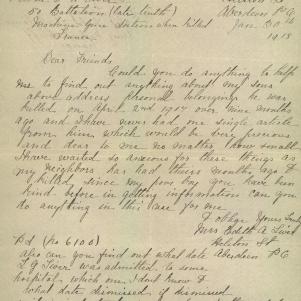 50 Battalion (late tenth) Aberdeen P.O
Machine Gun Section when killed Jan 30 16
France 1918
Dear Friends
Could you do anything to help
me to find out anything about my sons
above address personell belongings he was
killed on April 2nd 1917 over nine months
ago and I have never had one single article
from him which would be very precious
and dear to me no matter how small
I have waited so anxious for these things as
my neighbors has had things months ago
killed since my poor boy you have been
kind before in getting information can you
do anything in this case for me
I oblige Yours Truly
Mrs Edith A
St
Pd (No 6106) Aberdeen P.O
also can you find out what date
L G was admitted to some
hospital, which one I don't know
what date dismissed if dismissed